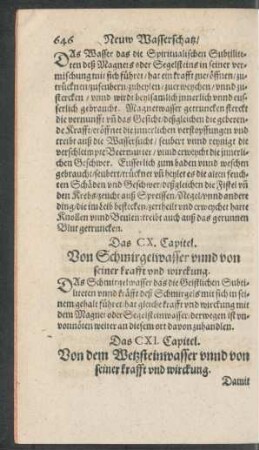 646 Neuw Wasserschatz/
DAs Wasser das die Spiritualischen Subtilite-
ten deß Magnets oder Segelsteins in seiner ver-
mischung mit sich führet/ hat ein krafft zueröffnen/ zu-
trücknen/ zuseubern/ zuheylen/ zuerweychen/ vnnd zu-
stercken/ vnnd wirdt derhalben innerlich vnnd eus-
serlich gebraucht. Magnetwasser getruncken sterckt
die vernunfft vñ das Gesicht/ deßgleichen die geberen-
de Krafft/ eröffnet die innerlichen verstopffungen vnd
treibt auß die Wassersucht/ seubert vnnd reyniget die
verschleimpte Beermutter/ vnnd erweycht die innerli-
chen Geschwer. Eusserlich zum baden vnnd weschen
gebraucht/ seubert/ trücknet vñ heylet es die alten feuch-
ten Schäden vnd Geschwer/ deßgleichen die Fistel vñ
den Krebs/ zeucht auß Spreissen/ Negel/ vnnd andere
ding/ die im leib bestecken/ zertheilt vnd erweycht harte
Knollen vnnd Beulen/ treibt auch auß das gerunnen
Blut getruncken.
Das CX. Capitel.
Von Schmirgelwasser vnnd von
seiner krafft vnd wirckung.
DAs Schmirgelwasser das die Geistlichen Subti-
liteten vnnd kräfft deß Schmirgels mit sich in sei-
nem gehalt führet/ hat gleiche krafft vnd wirckung mit
dem Magnet oder Segelsteinwasser/ derwegen ist vn-
vonnöten weiter an diesem ort davon zuhandlen.
Das CXI. Capitel.
Von dem Wetzsteinwasser vnnd von
seiner krafft vnd wirckung.
Damit